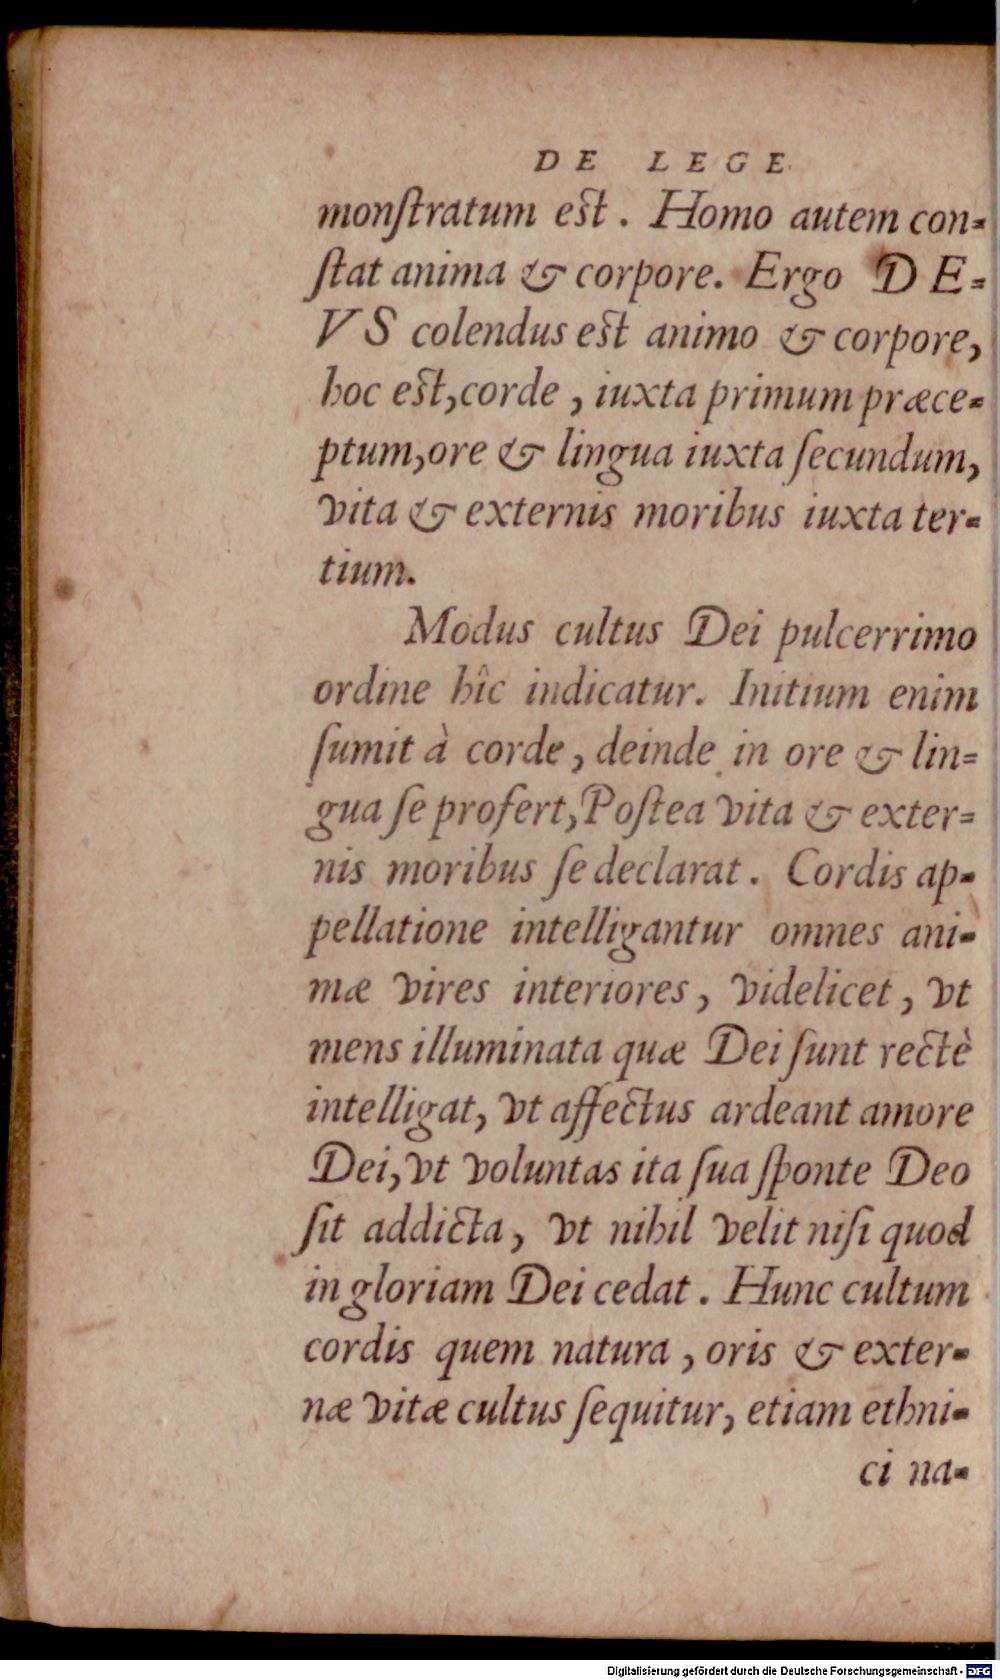 DE LEGE
monſtratum est. Homo autem con-
ſtat anima & corpore. Ergo DE-
VS colendus est animo & corpore,
hoc est, corde, iuxta primum præce-
ptum, ore & lingua iuxta ſecundum,
vita & externis moribus iuxta ter-
tium.
Modus cultus Dei pulcerrimo
ordine hîc indicatur. Initium enim
ſumit à corde, deinde in ore & lin-
gua ſe profert, Poſtea vita & exter-
nis moribus ſe declarat. Cordis ap-
pellatione intelligantur omnes ani-
mæ vires interiores, videlicet, vt
mens illuminata quæ Dei ſunt rectè
intelligat, vt affectus ardeant amore
Dei, vt voluntas ita ſua ſponte Deo
ſit addicta, vt nihil velit niſi quod
in gloriam Dei cedat. Hunc cultum
cordis quem natura, oris & exter-
næ vitæ cultus ſequitur, etiam ethni-
ci na-
Digitalisierung gefördert durch die Deutsche Forschungsgemeinschaft - DFG